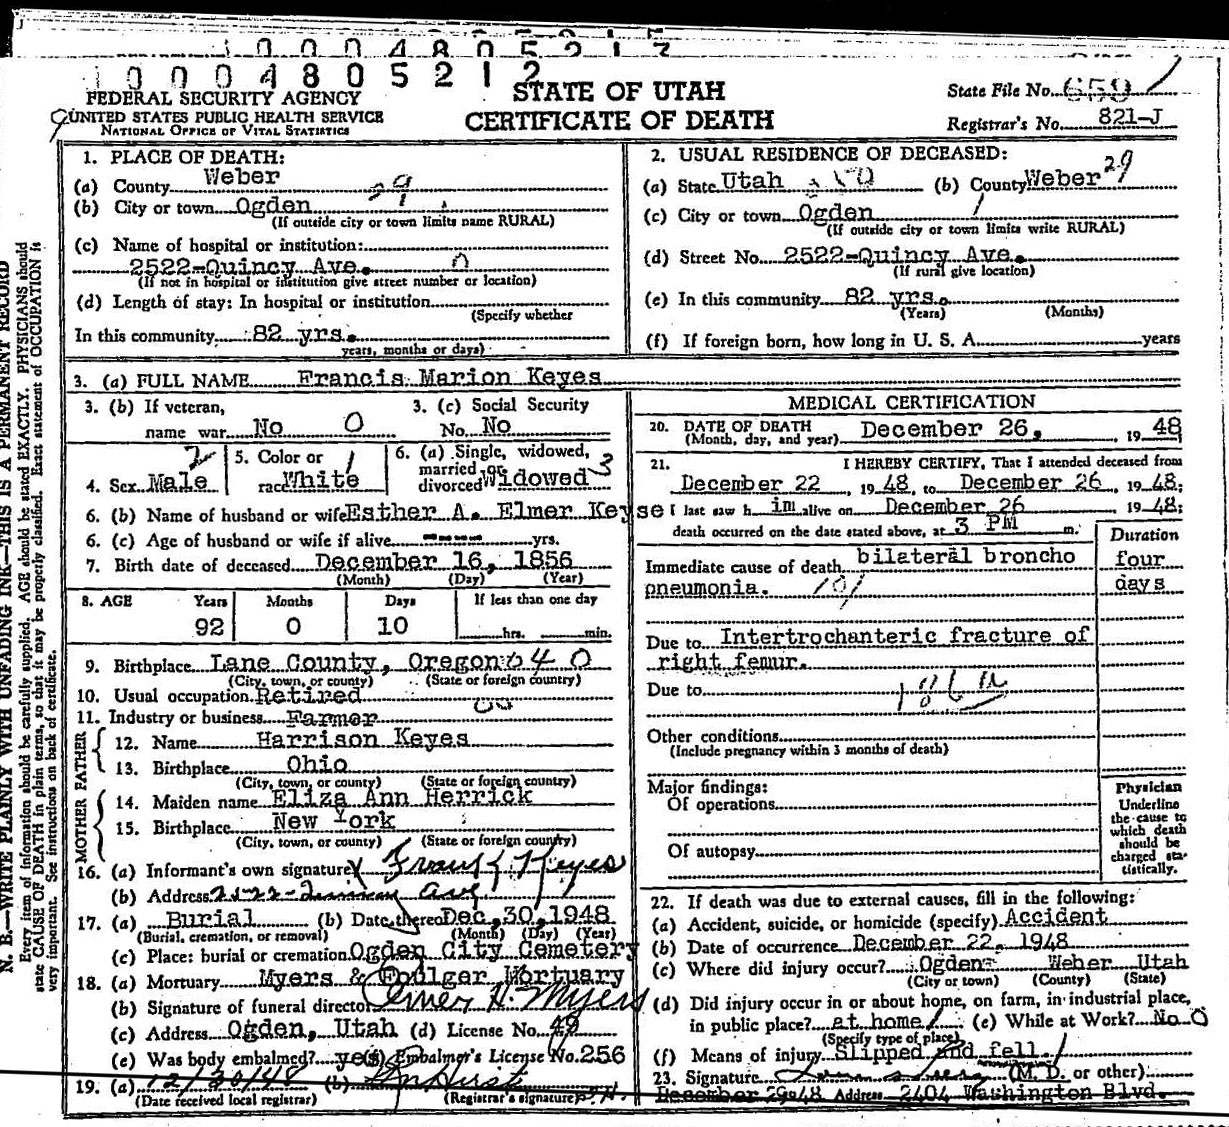 1 0 0 0 4 8 0 5 2 1 2
FEDERAL SECURITY AGENCY
UNITED STATES PUBLIC HEALTH SERVICE
NATIONAL OFFICE OF VITAL STATISTICS
STATE OF UTAH
CERTIFICATE OF DEATH
State File No.
Registrar's No. 821-J
N. B.—WRITE PLAINLY WITH UNFADING INK—THIS IS A PERMANENT RECORD
Every item of information should be carefully supplied. AGE should be stated EXACTLY. PHYSICIANS should
state CAUSE OF DEATH in plain terms, so that it may be properly classified. Exact statement of OCCUPATION is
very important. See instructions on back of certificate.
1. PLACE OF DEATH:
(a) County Weber 29
(b) City or town Ogden
(If outside city or town limits name RURAL)
(c) Name of hospital or institution:
2522-Quincy Ave. 0
(If not in hospital or institution give street number or location)
(d) Length of stay: In hospital or institution
(Specify whether
In this community 82 yrs.
years, months or days)
2. USUAL RESIDENCE OF DECEASED:
(a) State Utah (b) County Weber 29
(c) City or town Ogden 1
(If outside city or town limits write RURAL)
(d) Street No. 2522-Quincy Ave.
(If rural give location)
(e) In this community 82 yrs.
(Years) (Months)
(f) If foreign born, how long in U. S. A. years
3. (a) FULL NAME Francis Marion Keyes
3. (b) If veteran, 3. (c) Social Security
name war No 0 No. No
4. Sex Male 2 5. Color or race White 1 6. (a) Single, widowed, married or divorced Widowed 3
6. (b) Name of husband or wife Esther A. Elmer Keyse
6. (c) Age of husband or wife if alive ---- yrs.
7. Birth date of deceased December 16, 1856
(Month) (Day) (Year)
8. AGE Years Months Days If less than one day
92 0 10 hrs. min.
9. Birthplace Lane County, Oregon 640
(City, town, or county) (State or foreign country)
10. Usual occupation Retired
11. Industry or business Farmer
FATHER
12. Name Harrison Keyes
13. Birthplace Ohio
(City, town, or county) (State or foreign country)
MOTHER
14. Maiden name Eliza Ann Herrick
15. Birthplace New York
(City, town, or county) (State or foreign country)
16. (a) Informant's own signature Frank Keyes
(b) Address 2522-Quincy Ave
17. (a) Burial (b) Date thereof Dec. 30, 1948
(Burial, cremation, or removal) (Month) (Day) (Year)
(c) Place: burial or cremation Ogden City Cemetery
18. (a) Mortuary Myers & Foulger Mortuary
(b) Signature of funeral director Elmer H. Myers
(c) Address Ogden, Utah (d) License No. 49
(e) Was body embalmed? yes Embalmer's License No. 256
19. (a) 12/30/48 (b)
(Date received local registrar) (Registrar's signature)
MEDICAL CERTIFICATION
20. DATE OF DEATH
(Month, day, and year) December 26, , 19 48
21. I HEREBY CERTIFY, That I attended deceased from
December 22 , 19 48, to December 26 , 19 48;
I last saw h im alive on December 26 , 19 48;
death occurred on the date stated above, at 3 PM m.
Duration
Immediate cause of death bilateral broncho four
pneumonia. 107 days
Due to Intertrochanteric fracture of
right femur.
Due to 186 a
Other conditions
(Include pregnancy within 3 months of death)
Major findings:
Of operations
Of autopsy
Physician
Underline
the cause to
which death
should be
charged sta-
tistically.
22. If death was due to external causes, fill in the following:
(a) Accident, suicide, or homicide (specify) Accident
(b) Date of occurrence December 22, 1948
(c) Where did injury occur? Ogden Weber Utah
(City or town) (County) (State)
(d) Did injury occur in or about home, on farm, in industrial place,
in public place? at home (e) While at Work? No 0
(Specify type of place)
(f) Means of injury Slipped and fell.
23. Signature (M. D. or other)
December 29 48 Address 2404 Washington Blvd.